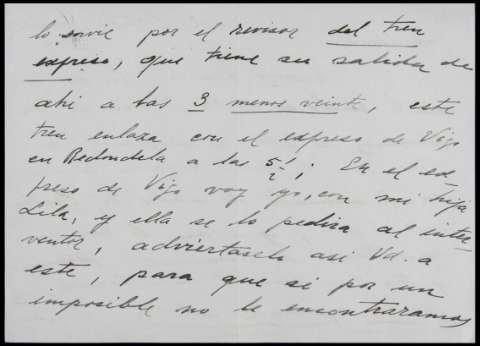 lo envie por el revisor del tren
expreso, que tiene su salida de
ahi a las 3 menos veinte, este
tren enlaza con el expreso de Vigo
en Redondela a las 5 1/2; En el ex-
preso de Vigo voy yo, con mi hija
Lila, y ella se lo pedira al inter-
ventor, adviertaselo asi Vd. a
este, para que si por un
imposible no le encontraramos